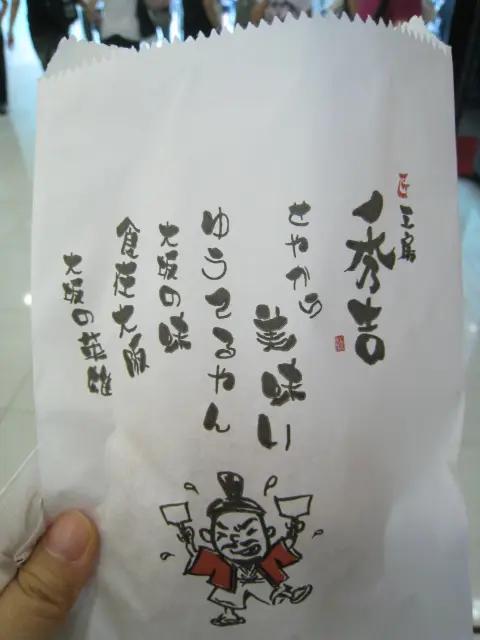 匠
工房
秀吉
せやから
美味い
ゆうてるやん
大坂の味
食在大阪
大坂の英雄